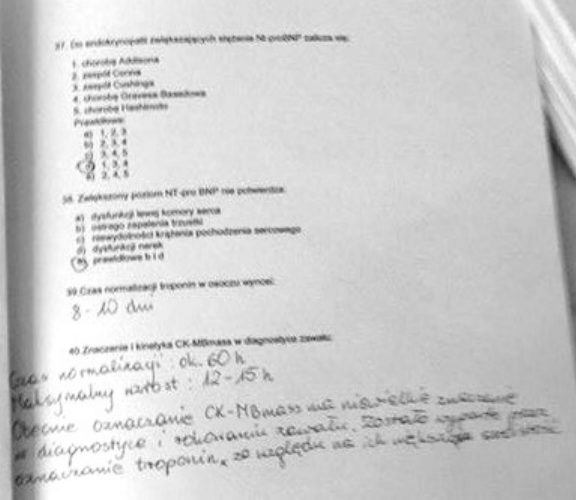 37. Do endokrynopatii zwiększających stężenie Nt-proBNP zalicza się:
1. chorobę Addisona
2. zespół Conna
3. zespół Cushinga
4. chorobę Gravesa-Basedowa
5. chorobę Hashimoto
Prawidłowe:
a) 1, 2, 3
b) 2, 3, 4
c) 3, 4, 5
d) 1, 3, 4
e) 2, 4, 5
38. Zwiększony poziom NT-pro BNP nie potwierdza:
a) dysfunkcji lewej komory serca
b) ostrego zapalenia trzustki
c) niewydolności krążenia pochodzenia sercowego
d) dysfunkcji nerek
e) prawidłowe b i d
39.Czas normalizacji troponin w osoczu wynosi:
8 - 10 dni
40.Znaczenie i kinetyka CK-MBmass w diagnostyce zawału:
Czas normalizacji : ok. 60 h
Maksymalny wzrost : 12 - 15 h
Obecnie oznaczanie CK-MBmass ma niewielkie znaczenie
w diagnostyce i rokowaniu zawału. Zostało wyparte przez
oznaczanie troponin, ze względu na ich większą